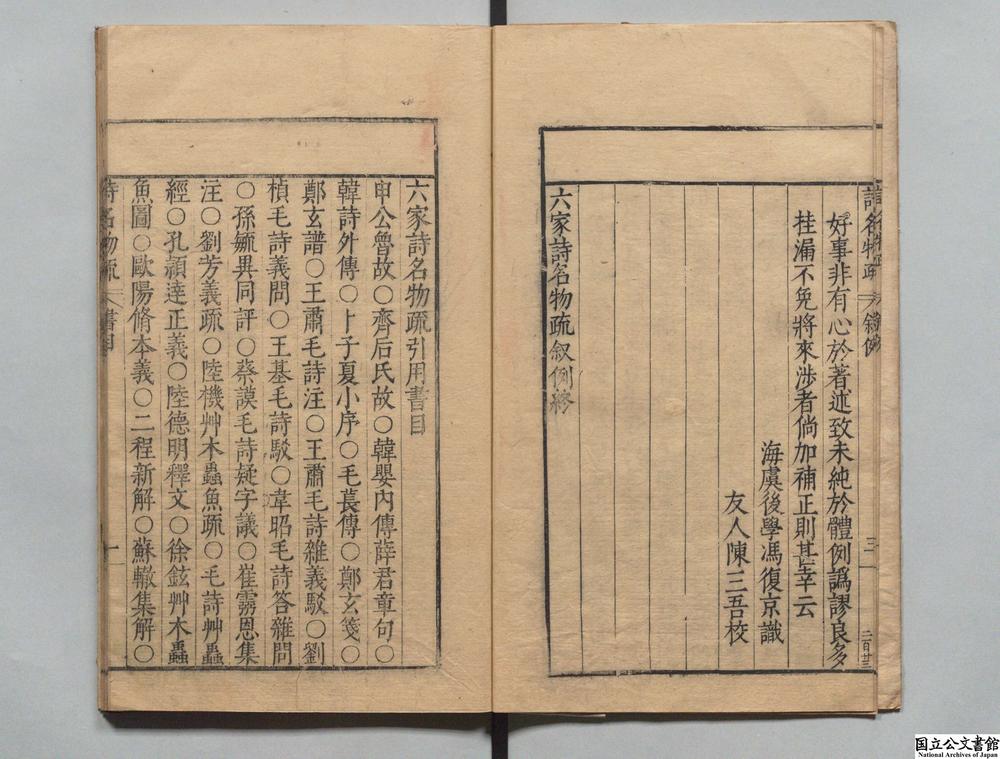 詩名物疏 敘例 三 二百廿三
好事非有心於著述致未純於體例譌謬良多
挂漏不免將來涉者倘加補正則甚幸云
海虞後學馮復京識
友人陳三吾校
六家詩名物疏敘例終
六家詩名物疏引用書目
申公魯故○齊后氏故○韓嬰內傳薛君章句○
韓詩外傳○卜子夏小序○毛萇傳○鄭玄箋○
鄭玄譜○王肅毛詩注○王肅毛詩雜義駁○劉
楨毛詩義問○王基毛詩駁○韋昭毛詩答雜問
○孫毓異同評○蔡謨毛詩疑字議○崔靈恩集
注○劉芳義疏○陸機艸木蟲魚疏○毛詩艸蟲
經○孔頴達正義○陸德明釋文○徐鉉艸木蟲
魚圖○歐陽脩本義○二程新解○蘇轍集解○
詩名物疏 書目 一
国立公文書館
National Archives of Japan